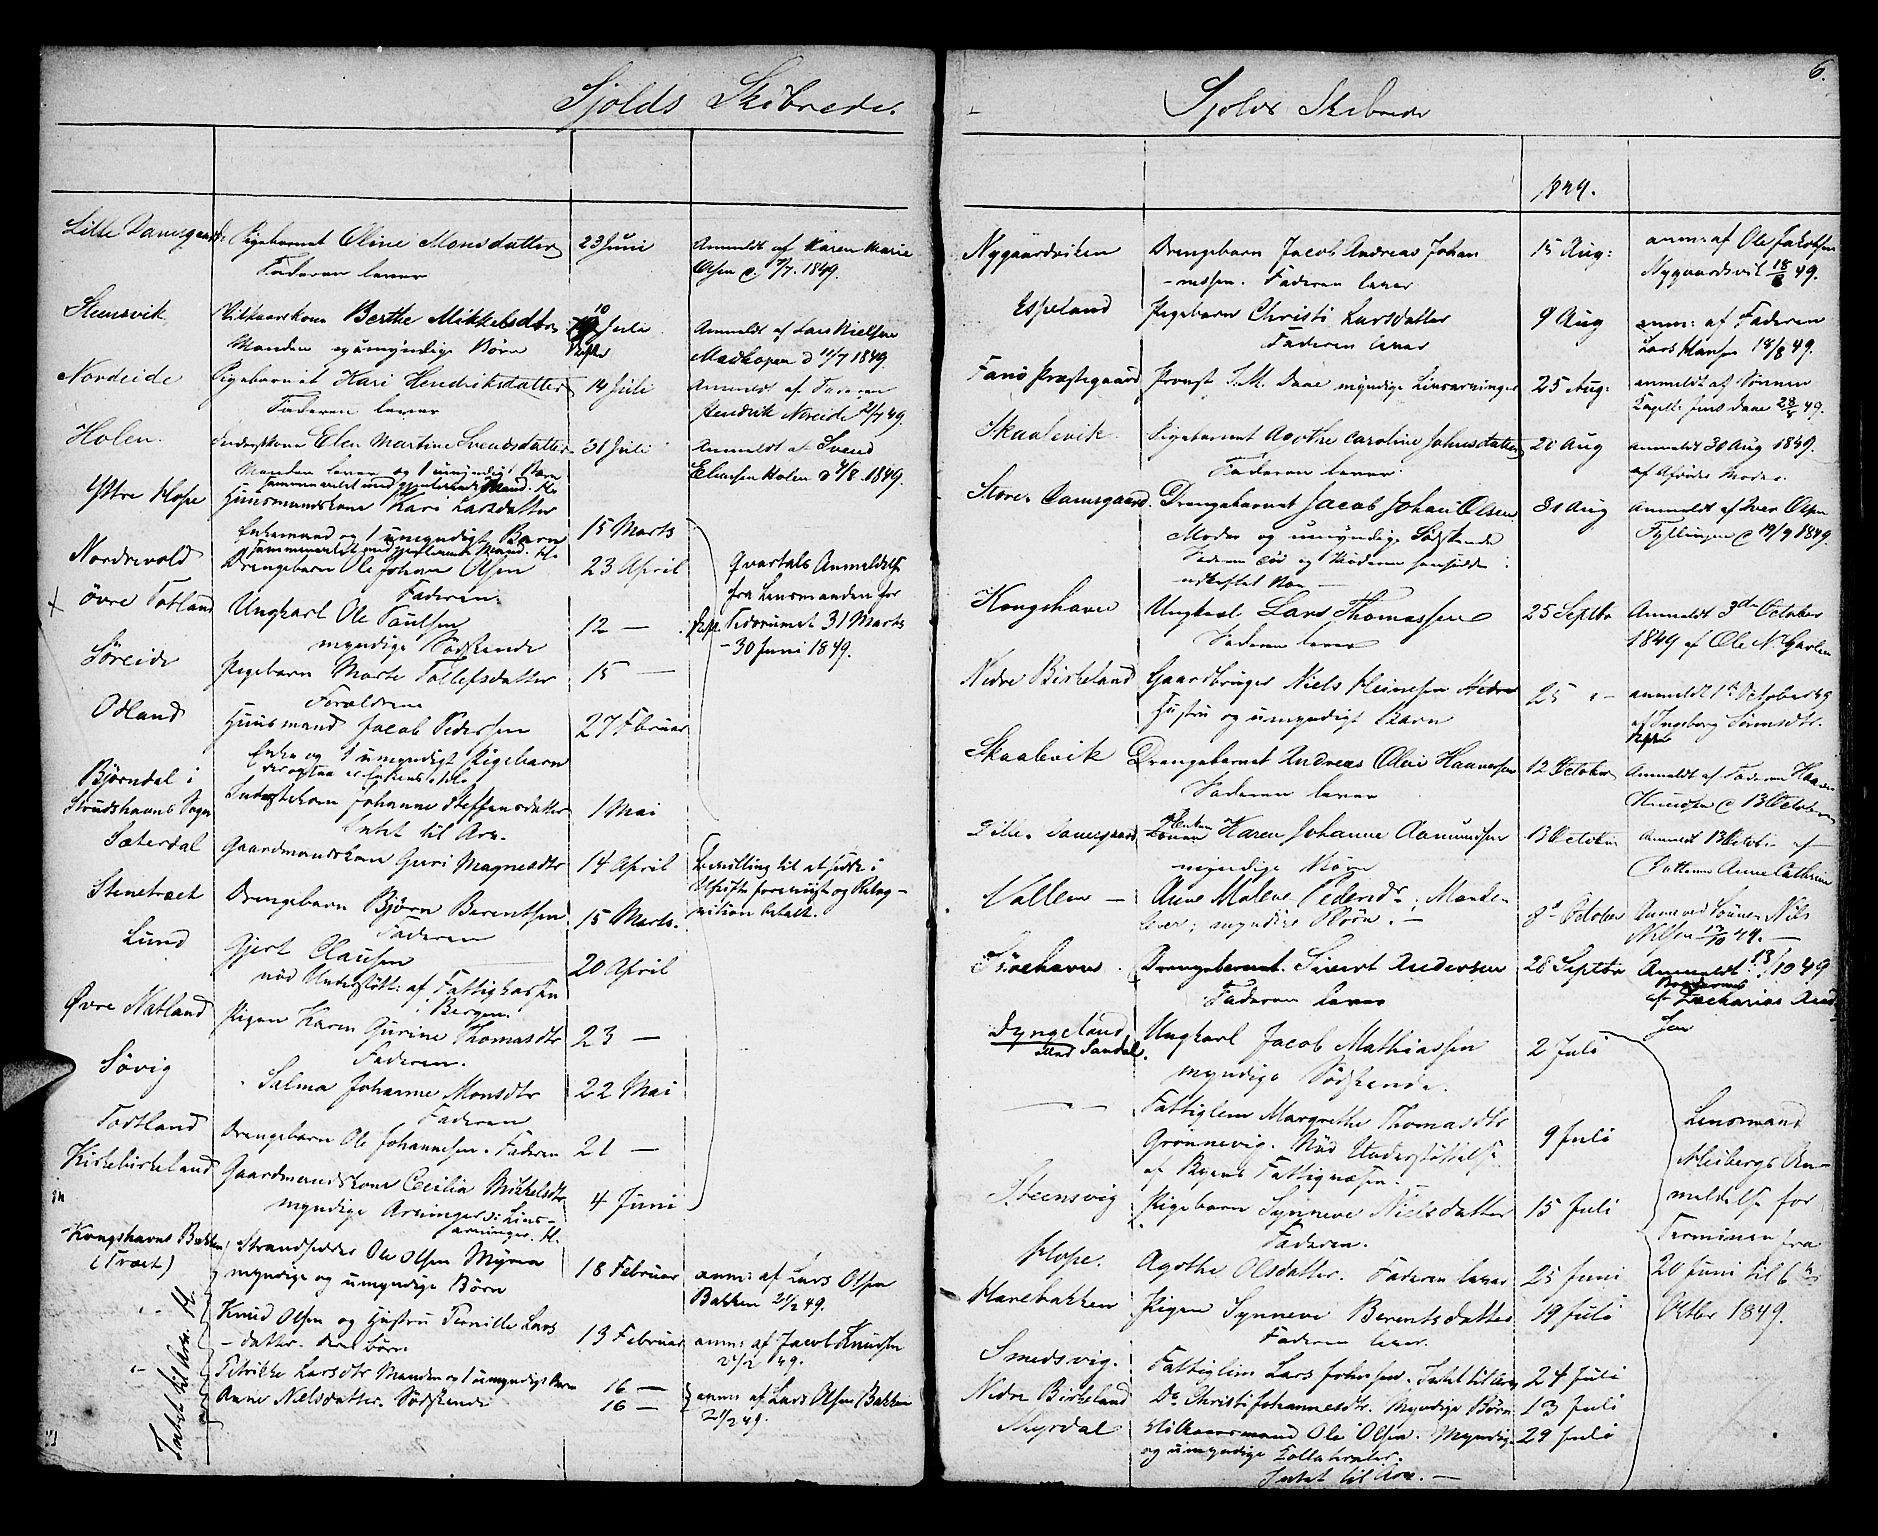 Fjolds Skibrede.
Lille Damsgaard: Pigebarnet Oline Monsdatter 23 Juni Anmeldt af Karen Marie
Faderen lever Olsen d. 7/7. 1849.
Steensvik Vilkaarskone Berthe Mikkelsdtr 10 Juli Anmeldt af Lars Nielsen
Manden og umyndige Børn Skifte Madkopen d 11/7 1849.
Nordeide Pigebarnet Kari Hendriksdatter 14 Juli Anmeldt af Faderen
Faderen lever Hendrik Noreide 21/7 49.
Holen. Inderstkone Elen Martine Svendsdatter 31 Juli Anmeldt af Svend
Manden lever og 1 umyndig Barn Eliasen Holen d 4/8. 1849.
Sammenarvet med gjenlevende Mand. H.
Ytre Hope Huusmandskone Kari Larsdatter 15 Marts
Enkemand og 1 umyndigt Barn
Sammenarvet med gjenlevende Mand. H.
Nordrevold Drengebarn Ole Johan Olsen 23 April Qvartals Anmeldelse
Faderen. fra Lensmanden for
x Øvre Totland Ungkarl Ole Paulsen 12 — Skft. Tidsrummet 31 Marts
myndige Sødskende – 30 Juni 1849.
Søreide Pigebarn Marte Tollefsdatter 15 —
Forældrene
Odland Huusmand Jacob Pedersen 27 Februar
Enken og 1 umyndigt Pigebarn
Bjørndal i Inderstekone Johanne Steffensdatter 1 Mai
Strudshavns Sogn Intet til Arv.
Sæterdal Gaardmandskone Guri Magnesdtr 14 April Bevilling til at sidde i
Stenetræet Drengebarn Bjørn Berentsen 15 Marts. Uskifte foreviist og Rekog-
Faderen nition betalt.
Lund Gjert Clausen 20 April
nød Understøtt: af Fattigkassen
i Bergen.
Øvre Natland Pigen Karen Gurine Thomasdtr 23 —
Faderen.
Søvig Salma Johanne Monsdtr 22 Mai
Faderen
Totland Drengebarn Ole Johannesen. Faderen 21 —
Kirkebirkeland Gaardmandskone Cecilia Mikkelsdtr 4 Juni
myndige Arvinger: Livs-
arvinger. H.
Kongshavns Bakken Strandsidder Ole Olsen Myren 18 Februar anm: af Lars Olsen
(Træet) myndige og umyndige Børn Bakken 21/2 49.
–"– Knud Olsen og Hustru Pernille Lars 13 Februar anm: af Jacob Knudsen
–datter. Børn 21/2 49.
–"– Petrikke Larsdtr Manden og 1 umyndigt Barn 16 — anm: af Lars Olsen Bakken
Anne Nielsdatter. Sødskende 16 — 21/2 49.
Intet til Arv. H.
6.
Fjolds Skibrede
1849.
Nygaardsviken Drengebarn Jacob Andreas Johan 15 Aug: anm: af Ole Jakobsen
–nessen. Faderen lever Nygaardsvik 18/8 49.
Espeland Pigebarn Christi Larsdatter 9 Aug anm: af Faderen
Faderen lever Lars Hansen 18/8 49.
Fanø Præstegaard Provst S. M. Daae myndige Livsarvinger 25 Aug: anmeldt af Sønnen
Capell: Jens Daae 28/8 49.
Skaalevik. Pigebarnet Agothe Caroline Johnsdatter 20 Aug anmeldt 30 Aug 1849.
Faderen lever. af Afdødes Moder.
Store Damsgaard. Drengebarnet Jacob Johan Olsen 31 Aug Anmeldt af Iver Olsen
Moder og umyndige Sødskende Fyllingen d 19/9 1849.
Kongshavn Ungkarl Lars Thomassen 25 Septbr Anmeldt 3de October
Faderen lever 1849 af Ole N. Garlen
Nedre Birkeland Gaardbruger Niels Heinesen Nedre 25 "– anmeldt 1st October 49
Hustru og umyndigt Barn af Ingeborg Simensdtr.
Skaalevik Drengebarnet Andreas Olai Haaversen 12 October Anmeldt af Faderen Haaver
Faderen lever Knudsen d 13 October
Lille Damsgaard Enken Karen Johanne Aamundsen 13 October Anmeldt 13 October af
myndige Børn Datteren Anne Cathrine
Vallen — Anne Malene Pedersdr. Manden 8de October Anm. ved Sønnen Nils
lever; myndige Børn. — Nilsen 13/10 49. —
Drengebarnet. Sivert Andersen 28 Septbr Anmeldt 13/10 49
Faderen lever af Zacharias Andersen
Dyngeland Ungkarl Jacob Mathiassen 2 Juli
med Sandal. myndige Sødskende.
— " — Fattiglem Margrethe Thomasdtr 9 Juli Lensmand
Grønnevig. Nød Understøttelse Meibergs An-
af Byens Fattigvæsen. meldelse for
Steensvig Pigebarn Synneve Nielsdatter 15 Juli Terminen fra
Faderen.
Hope. Agothe Olsdatter. Faderen lever 25 Juni 20 Juni til 6te
Harebakken Pigen Synneve Berentsdatter 19 Juli Oktbr 1849.
Faderen lever.
Smedsvig. Fattiglem Lars Johansen. Intet til Arv 24 Juli
Nedre Birkeland Do Christi Johannesdtr. Myndige Børn 13 Juli
Myrdal Vilkaarsmand Ole Olsen. Myndige 29 Juli
og umyndige Collateraler.
Intet til Arv. —